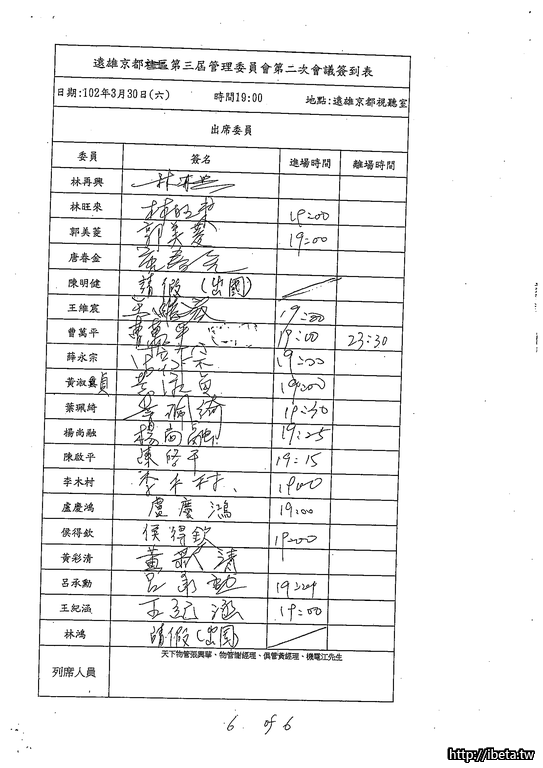 遠雄京都社區第三屆管理委員會第二次會議簽到表
日期:102年3月30日(六) 時間19:00 地點:遠雄京都視聽室
出席委員
委員 簽名 進場時間 離場時間
林再興
林旺來 林旺來 19:00
郭美菱 郭美菱 19:00
唐春金 唐春金
陳明健 請假(出國)
王維宸 19:00
曹萬平 曹萬平 19:00 23:30
薛永宗 19:00
黃淑貞 黃淑貞 19:00
葉珮綺 葉珮綺 19:30
楊尚融 楊尚融 19:25
陳啟平 陳啓平 19:15
李木村 李木村 19:00
盧慶鴻 盧慶鴻 19:00
侯得欽 侯得欽 19:00
黃彩清 黃彩清
呂承勳 呂承勳
王紀涵 王紀涵 19:00
林鴻 請假(出國)
列席人員 天下物管張興華、物管謝經理、俱管黃經理、機電江先生
6 of 6
http://ibeta.tw